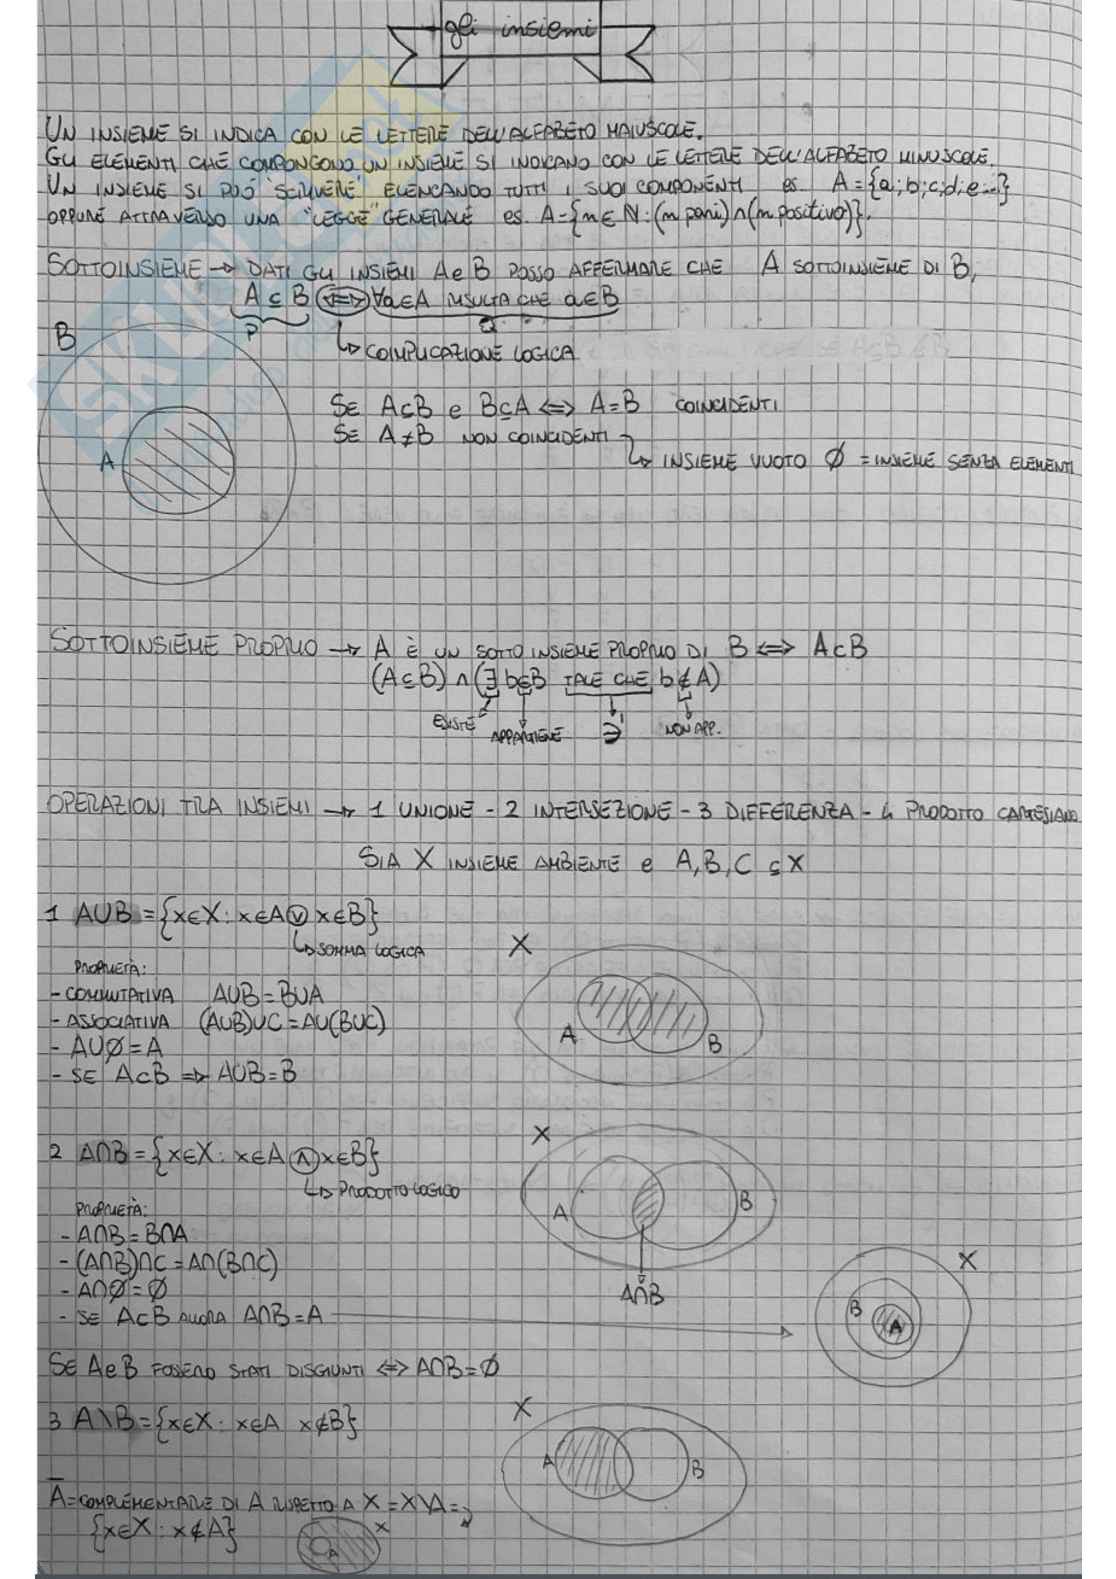 gli insiemi
UN INSIEME SI INDICA CON LE LETTERE DELL'ALFABETO MAIUSCOLE.
GLI ELEMENTI CHE COMPONGONO UN INSIEME SI INDICANO CON LE LETTERE DELL'ALFABETO MINUSCOLE.
UN INSIEME SI PUÒ "SCRIVERE" ELENCANDO TUTTI I SUOI COMPONENTI es. A={a;b;c;d;e...}
OPPURE ATTRAVERSO UNA "LEGGE" GENERALE es. A={n∈N:(n pari)∧(n positivo)}.
SOTTOINSIEME → DATI GLI INSIEMI A e B POSSO AFFERMARE CHE A SOTTOINSIEME DI B,
A⊆B ⇔ ∀a∈A RISULTA CHE a∈B
P Q
↳ COIMPLICAZIONE LOGICA
B
A
SE A⊆B e B⊆A ⇔ A=B COINCIDENTI
SE A≠B NON COINCIDENTI
↳ INSIEME VUOTO Ø = INSIEME SENZA ELEMENTI
SOTTOINSIEME PROPRIO → A È UN SOTTOINSIEME PROPRIO DI B ⇔ A⊂B
(A⊆B) ∧ (∃ b∈B TALE CHE b∉A)
ESISTE APPARTIENE ∋' NON APP.
OPERAZIONI TRA INSIEMI → 1 UNIONE - 2 INTERSEZIONE - 3 DIFFERENZA - 4 PRODOTTO CARTESIANO
SIA X INSIEME AMBIENTE e A,B,C ⊆ X
1 A∪B={x∈X: x∈A ∨ x∈B}
↳ SOMMA LOGICA
PROPRIETÀ:
- COMMUTATIVA A∪B=B∪A
- ASSOCIATIVA (A∪B)∪C=A∪(B∪C)
- A∪Ø=A
- SE A⊂B ⇒ A∪B=B
X
A B
2 A∩B={x∈X: x∈A ∧ x∈B}
↳ PRODOTTO LOGICO
PROPRIETÀ:
- A∩B=B∩A
- (A∩B)∩C=A∩(B∩C)
- A∩Ø=Ø
- SE A⊂B ALLORA A∩B=A
X
A B
A∩B
X
B A
SE A e B FOSSERO STATI DISGIUNTI ⇔ A∩B=Ø
3 A\B={x∈X: x∈A x∉B}
X
A B
Ā=COMPLEMENTARE DI A RISPETTO A X = X\A=
{x∈X: x∉A}
X
A